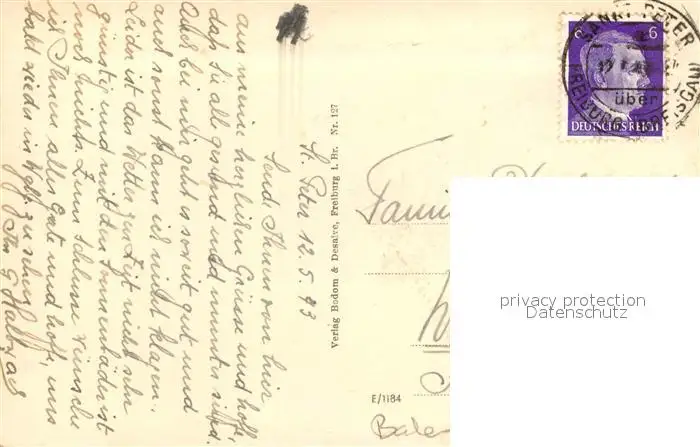 St. Peter 12.5.43
Sende Ihnen von hier
aus meine herzlichen Grüsse und hoffe,
daß Sie all gesund und munter sind.
Auch bei mir geht es soweit gut und
auch sonst kann ich nicht klagen.
Leider ist das Wetter zur Zeit nicht sehr
günstig und mit den Sonnenbäder ist
noch nichts. Zum Schlusse wünsche
ich Ihnen alles Gute und hoffe, uns
bald wieder in zu sehen.
Ihr G.
Verlag Bodom & Desaive, Freiburg i. Br. Nr. 127
SANKT PETER
über
FREIBURG BREISGAU
6 6
DEUTSCHES REICH
Famil
E/1184
privacy protection
Datenschutz